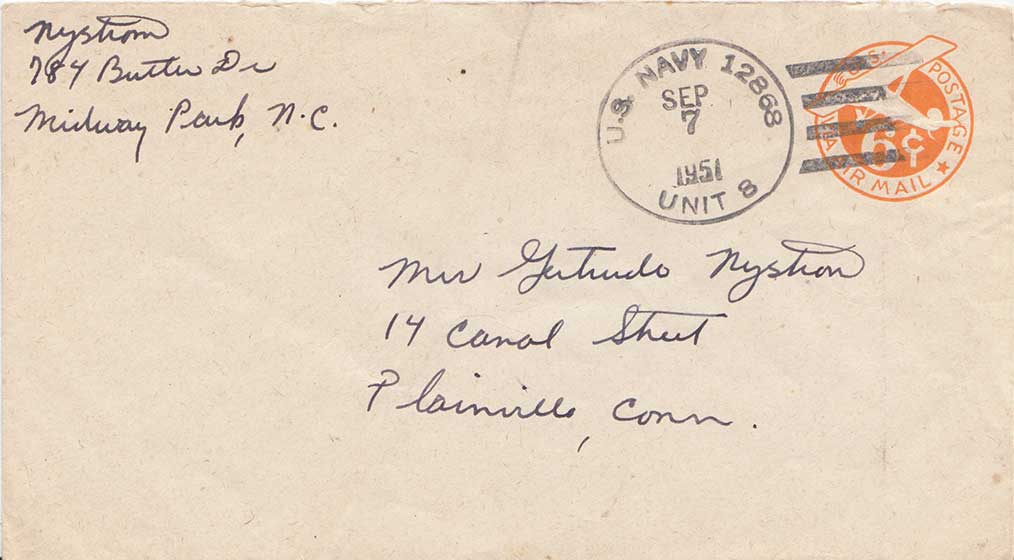 Nystrom
784 Butler Dr
Midway Park, N.C.
U.S. NAVY 12868
SEP
7
1951
UNIT 8
U.S. POSTAGE
6¢
VIA AIR MAIL
Mrs Gertrude Nystrom
14 Canal Street
Plainville, Conn.